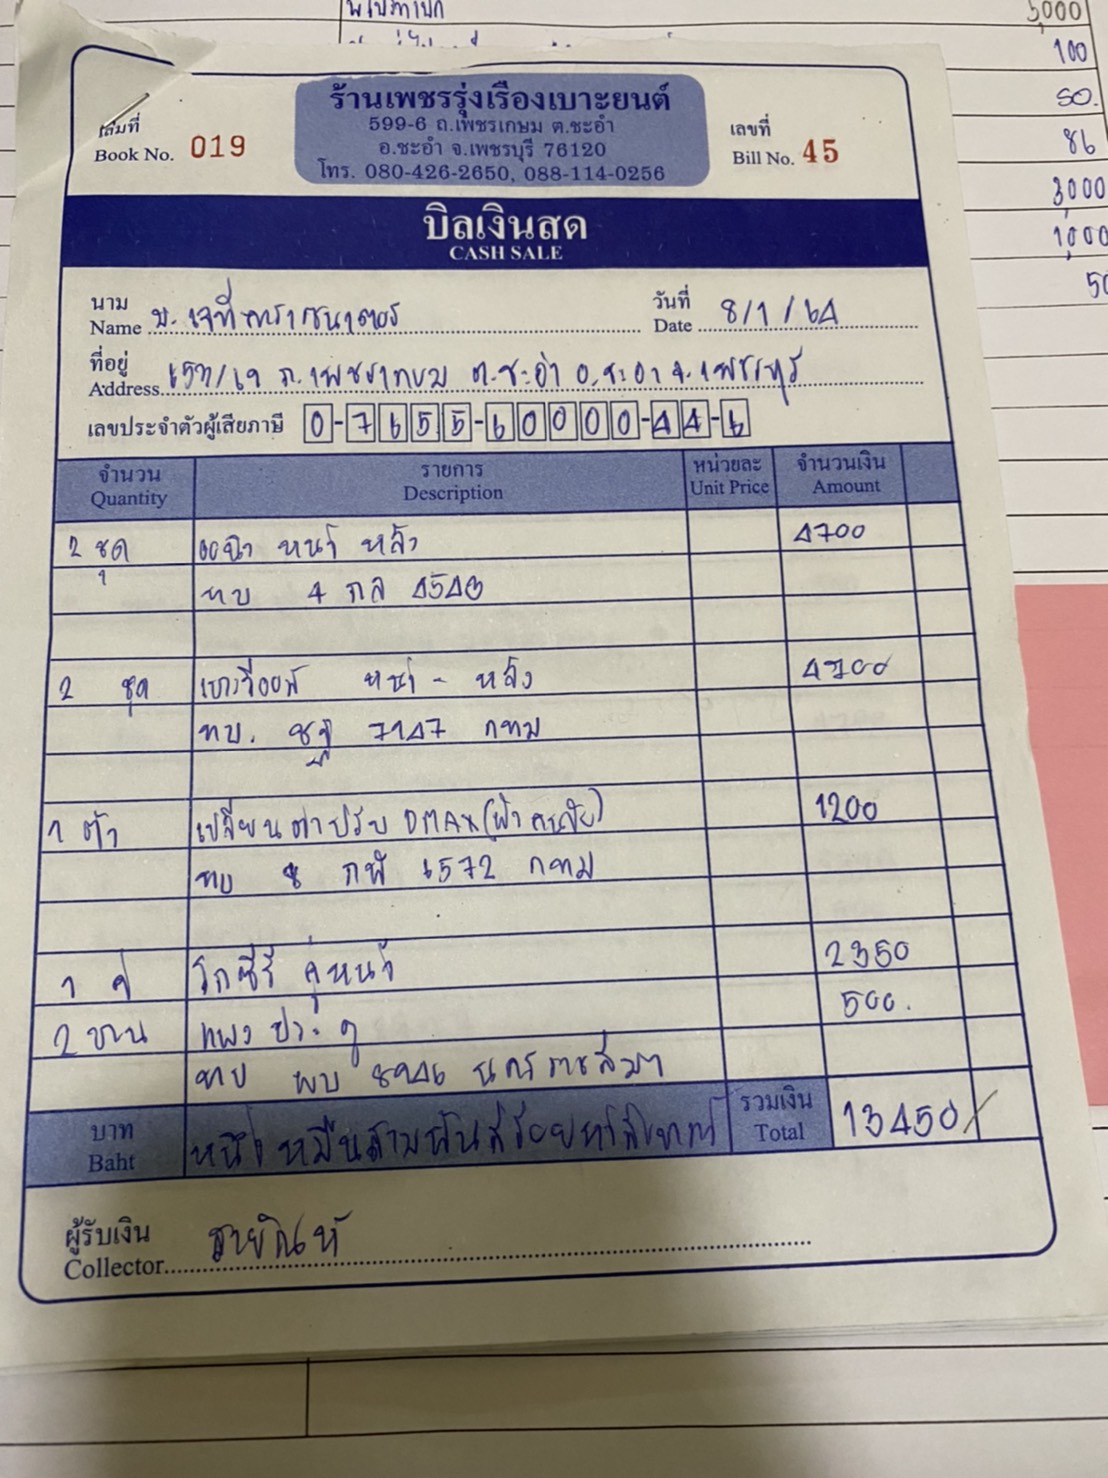 5,000
100
50.
86
3,000
1,000
50
ร้านเพชรรุ่งเรืองเบาะยนต์
599-6 ถ.เพชรเกษม ต.ชะอำ
อ.ชะอำ จ.เพชรบุรี 76120
โทร. 080-426-2650, 088-114-0256
เล่มที่
Book No. 019
เลขที่
Bill No. 45
บิลเงินสด
CASH SALE
นาม
Name บ. เจที
วันที่
Date 8/1/64
ที่อยู่
Address ถ.เพชรเกษม ต.ชะอำ อ.ชะอำ จ.เพชรบุรี
เลขประจำตัวผู้เสียภาษี 0-7655-60000-44-6
จำนวน รายการ หน่วยละ จำนวนเงิน
Quantity Description Unit Price Amount
2 ชุด หน้า หลัง 4700
ทบ 4 กล 4540
2 ชุด หน้า - หลัง 4700
ทบ. 7147 กทม
1 ตัว เปลี่ยน ปรับ DMAX 1200
ทบ 8 กฬ 6572 กทม
1 คู่ โกซีรี คู่หน้า 2350
2 บาน แผงประตู 500.
ทบ ผบ 8946 นครราชสีมา
บาท
Baht หนึ่งหมื่นสามพันสี่ร้อยห้าสิบบาท
รวมเงิน
Total 13450
ผู้รับเงิน
Collector